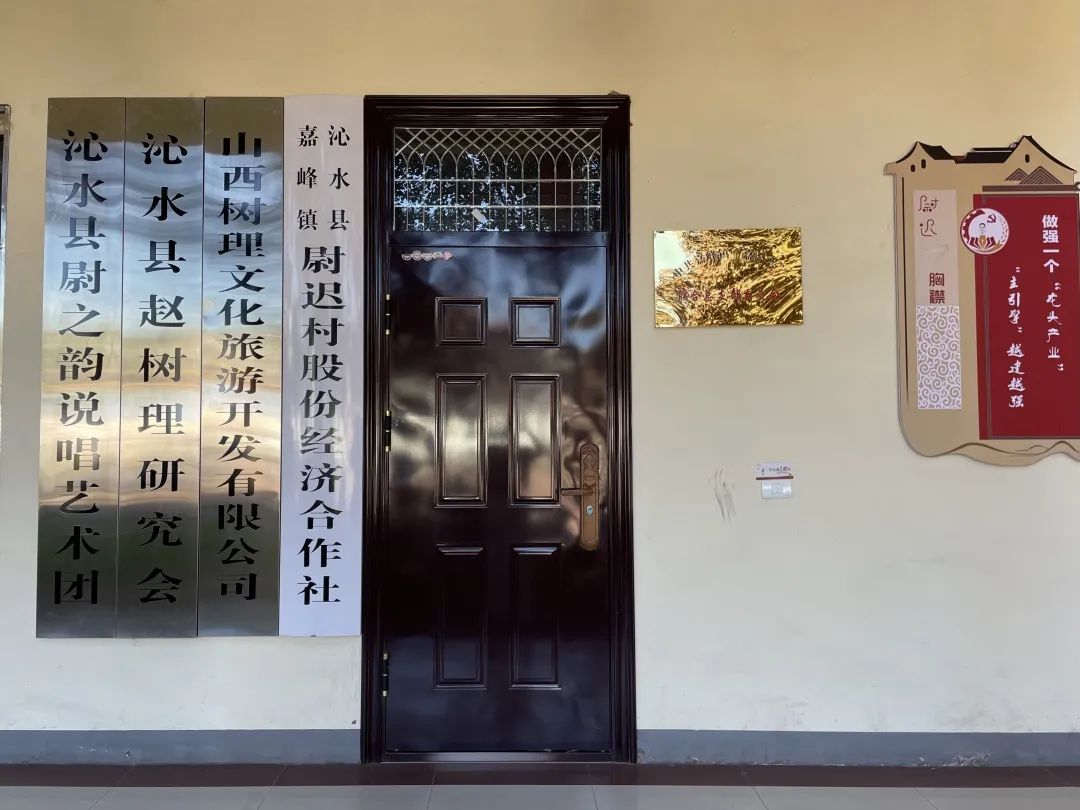 沁水县尉之韵说唱艺术团
沁水县赵树理研究会
山西树理文化旅游开发有限公司
沁水县
嘉峰镇
尉迟村股份经济合作社
尉迟
胸襟
做强一个“龙头产业”
“主引擎”越建越强